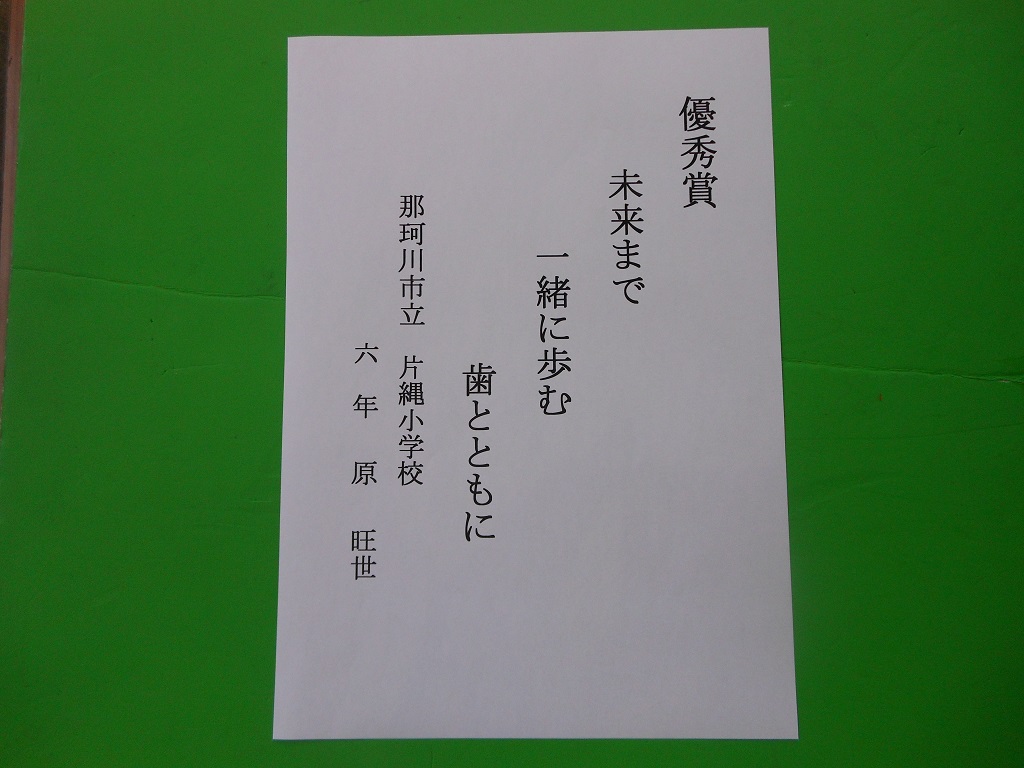 優秀賞
未来まで
一緒に歩む
歯とともに
那珂川市立　片縄小学校
六年　原　旺世